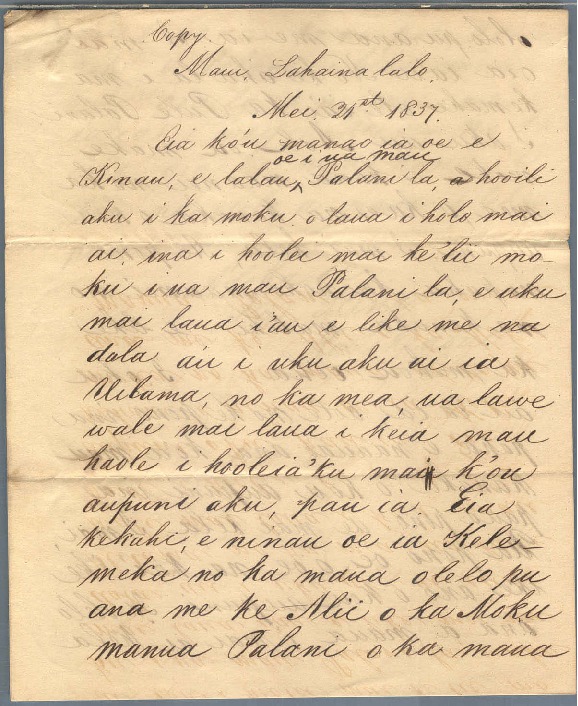 Copy
Maui. Lahaina lalo.
Mei. 21st 1837.
Eia ko'u manao ia oe e
oe i ua mau
Kinau, e lalau, Palani la, a hooili
aku i ka moku o laua i holo mai
ai, ina i hoolei mai ke'lii mo-
ku i ua mau Palani la, e uku
mai laua i'au e like me na
dala a'u i uku aku ai ia
Uilama, no ka mea, ua lawe
wale mai laua i keia mau
haole i hooleia'ku mai k'ou
aupuni aku, pau ia. Eia
kekahi, e ninau oe ia Kele-
meka no ka maua olelo pu
ana me ke Alii o ka Moku
manua Palani o ka maua